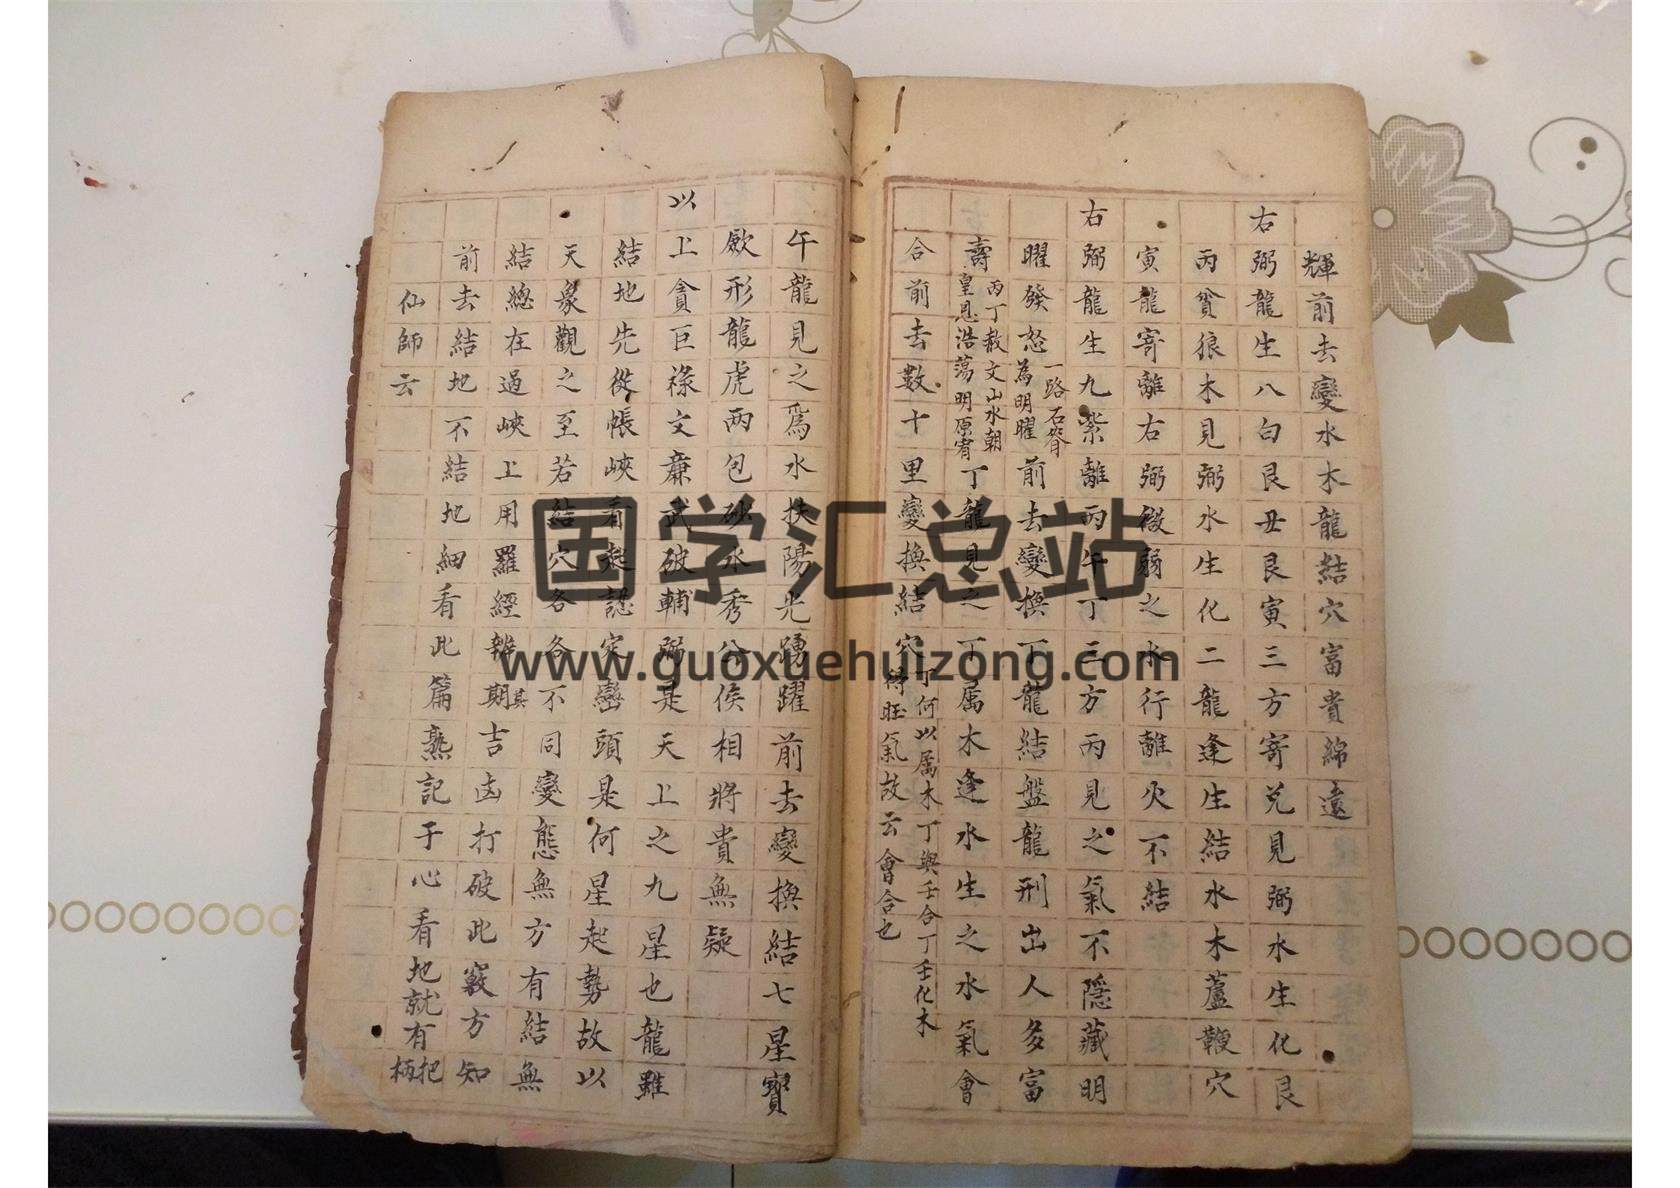 輝前去變水木龍結穴富貴綿遠
右弼龍生八白艮丑艮寅三方寄兌見弼水生化艮
丙貧狼木見弼水生化二龍逢生結水木蘆鞭穴
寅龍寄離右弼微弱之水行離火不結
右弼龍生九紫離丙午丁三方丙見之氣不隱藏明
曜發怒一路石脊為明曜前去變換丁龍結盤龍形出人多富
壽丙丁赦文山水朝皇恩浩蕩明原宥丁龍見之丁屬木逢水生之水氣會
合前去數十里變換結穴丁何以屬木丁與壬合丁壬化木得旺氣故云會合也
午龍見之爲水扶陽光踴躍前去變換結七星寶
厰形龍虎兩包砂水秀公侯相將貴無疑
以上貪巨祿文廉武破輔弼是天上之九星也龍雖
結地先從帳峽看起認定巒頭是何星起勢故以
天象觀之至若結穴各各不同變態無方有結無
結總在過峽上用羅經辨其期吉凶打破此竅方知
前去結地不結地細看此篇熟記于心看地就有把柄
仙師云
国学汇总站
www.guoxuehuizong.com